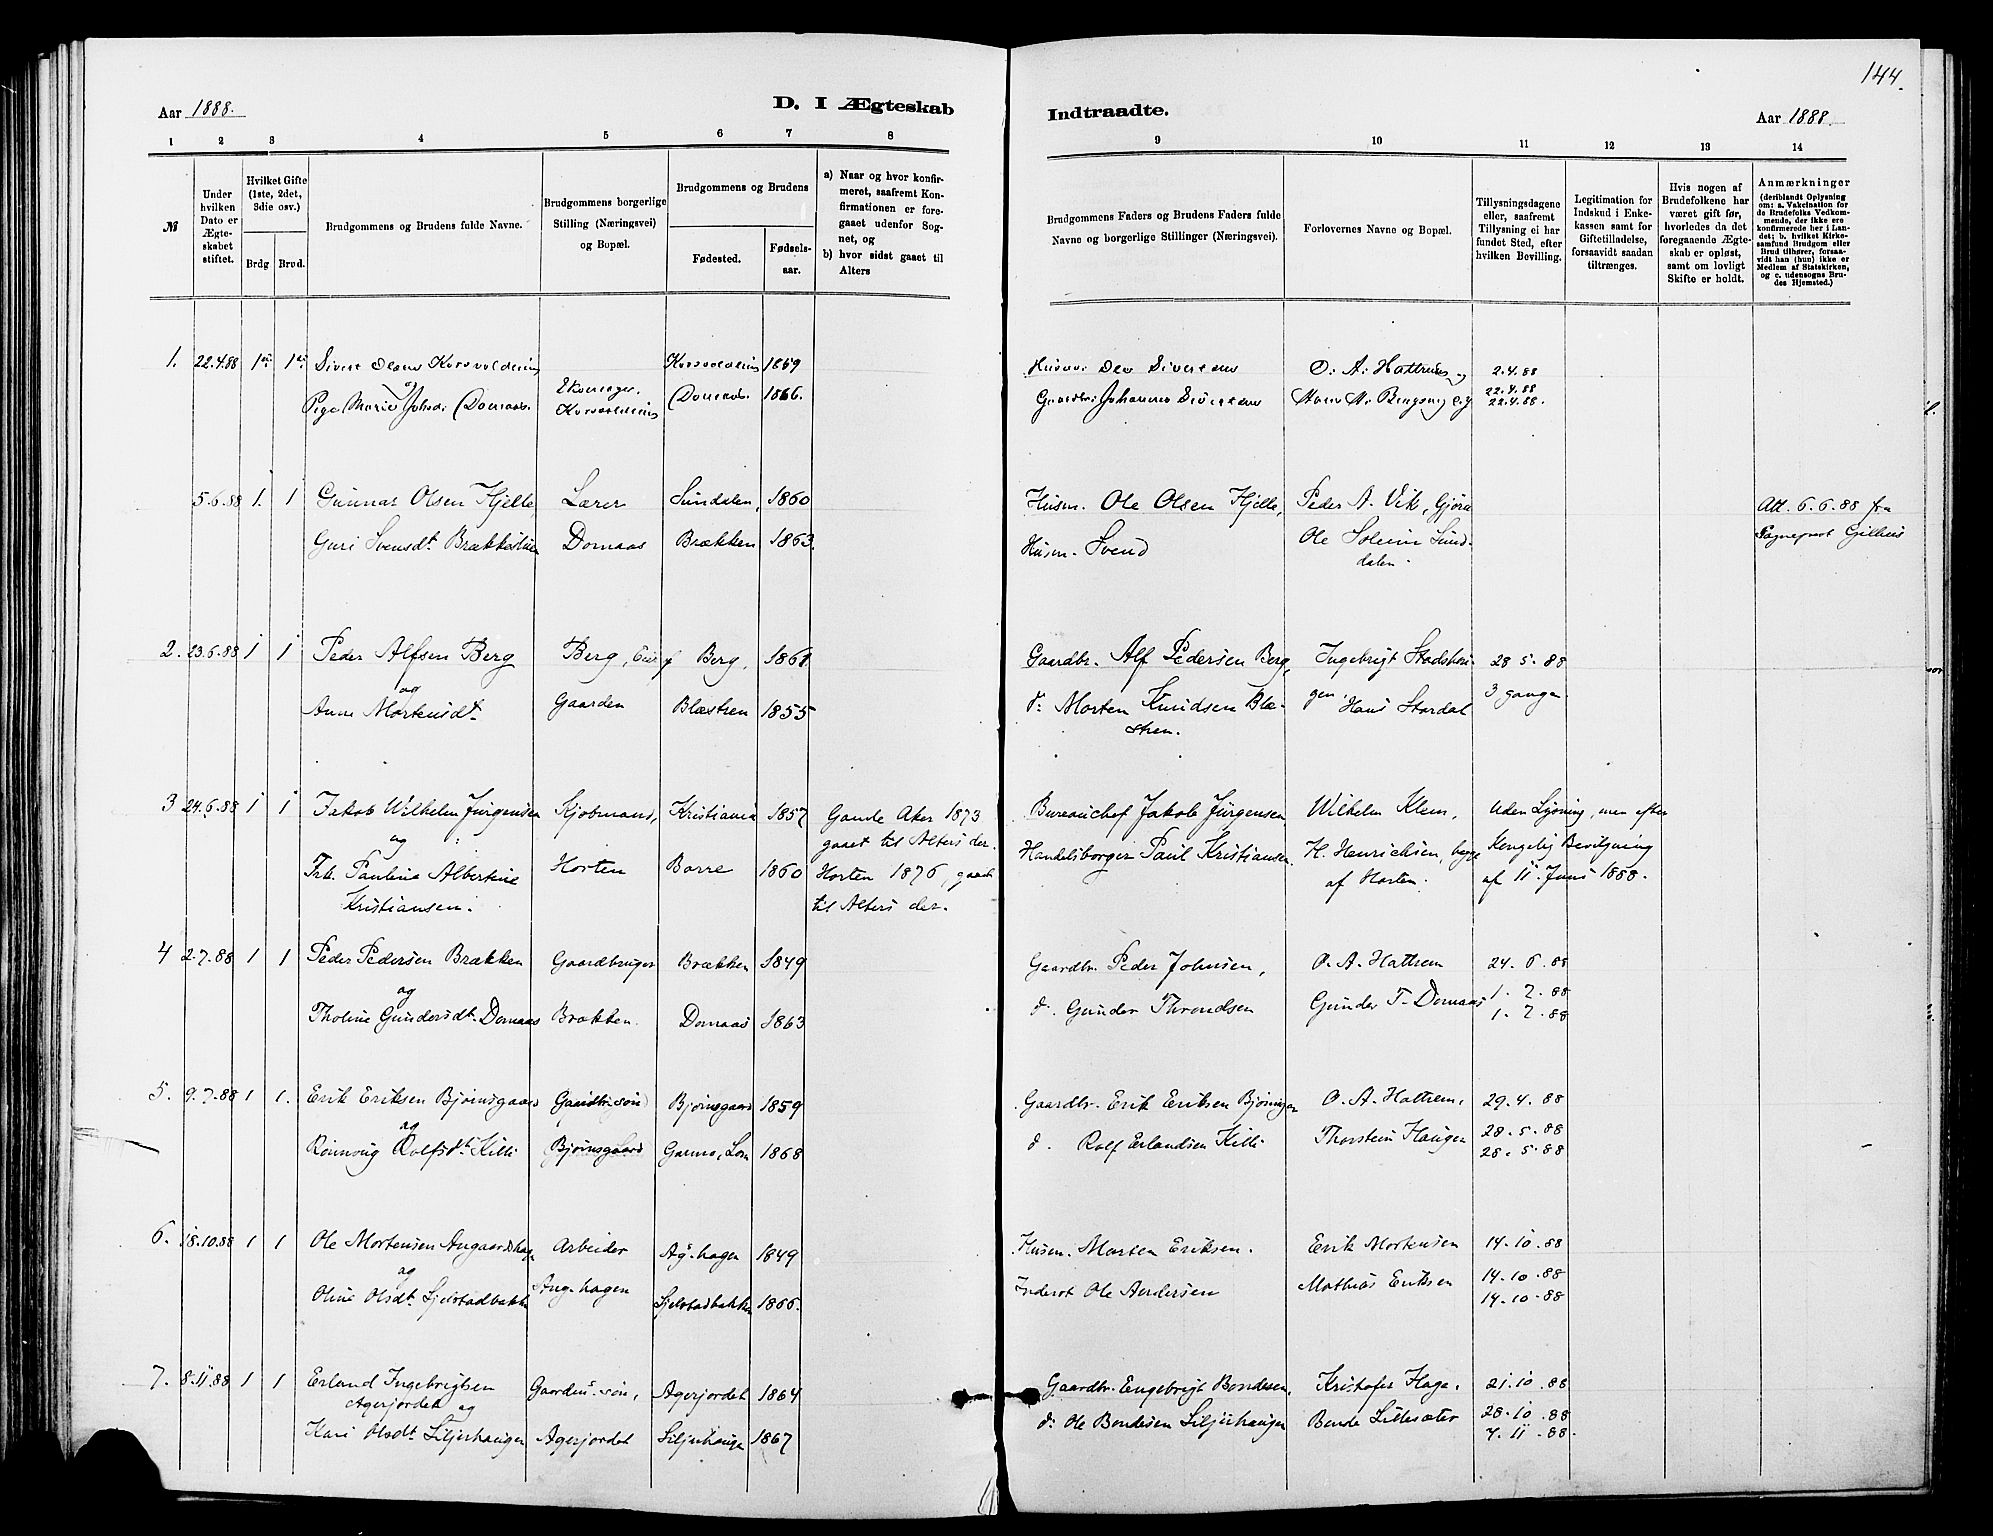 144.
Aar 1888.
D. I Ægteskab
Indtraadte.
Aar 1888.
1 2 3 4 5 6 7 8
9 10 11 12 13 14
№
Under hvilken Dato er Ægteskabet stiftet.
Hvilket Gifte (1ste, 2det, 3die osv.)
Brdg Brud.
Brudgommens og Brudens fulde Navne.
Brudgommens borgerlige Stilling (Næringsvei) og Bopæl.
Brudgommens og Brudens
Fødested.
Fødselsaar.
a) Naar og hvor konfirmeret, saafremt Konfirmationen er foregaaet udenfor Sognet, og
b) hvor sidst gaaet til Alters
Brudgommens Faders og Brudens Faders fulde Navne og borgerlige Stillinger (Næringsvei).
Forlovernes Navne og Bopæl.
Tillysningsdagene eller, saafremt Tillysning ei har fundet Sted, efter hvilken Bevilling.
Legitimation for Indskud i Enkekassen samt for Giftetilladelse, forsaavidt saadan tiltrænges.
Hvis nogen af Brudefolkene har været gift før, hvorledes da det foregaaende Ægteskab er opløst, samt om lovligt Skifte er holdt.
Anmærkninger (deriblandt Oplysning om: a. Vakcination for de Brudefolks Vedkommende, der ikke ere konfirmerede her i Landet; b. hvilket Kirkesamfund Brudgom eller Brud tilhører, forsaavidt han (hun) ikke er Medlem af Statskirken, og c. udensogns Brudes Hjemsted.)
1. 22.4.88 Sivert Olsens Korsvoldeiens Korsvoldeiens 1859 Husm. Ole Sivertsens O. A. Hattrem 2.4.88
og 22.4.88
Marie Johsdr. Domaas. Korsvoldeiens Domaas 1866. Gaardbr. Johannes Sivertsens 22.4.88.
5.6.88 1. 1 Gunnar Olsen Hjelle Lærer Sundalen, 1860 Husm. Ole Olsen Hjelle, Peder A. Vik, Gjøra Att. 6.6.88 fra
Guri Svensdt. Brækkestuen Domaas Brækken 1863. Husm. Svend Ole Soleim Sundalen. Sogneprest Gjelhus
2. 23.6.88 1 1 Peder Alfsen Berg Berg, Eier af Berg, 1861 Gaardbr. Alf Pedersen Berg, Ingebrigt Stadshaugen. 28-5-88
og
Anne Mortensdt. Gaarden Blæstren 1855 d: Morten Knudsen Blæstren. Hans Stordal 3 gange.
3 24.6.88 1 1 Jakob Wilhelm Jürgensen Kjøbmand, Kristiania 1857 Gamle Aker 1873 Bureauchef Jakob Jürgensen Wilhelm Klem, Uden Lysning, men efter
og gaaet til Alters der.
Frk. Pauline Albertine Horten Borre 1860 Horten 1876, gaaet Handelsborger Paul Kristiansen. H. Henrichsen, begge Kongelig Bevilgning
Kristiansen. til Alters der. af Horten. af 11 Juni 1888.
4 2.7.88 1 1 Peder Pedersen Brækken Gaardbruger Brækken 1849 Gaardbr. Peder Johnsen, O. A. Hattrem 24. 6. 88
og 1. 7. 88
Tholine Gundersdt. Domaas Brækken. Domaas 1863 d. Gunder Throndsen Gunder T. Domaas 1. 7. 88
5. 9.7.88 1 1. Erik Eriksen Bjørnsgaard Gaardbr. søn Bjørnsgaard 1859 Gaardbr. Erik Eriksen O. A. Hattrem, 29.4.88
og 28.5.88
Rønnoug Rolfsdt. Killi Bjørnsgaard Garmo, Lom 1868 d. Rolf Erlandsen Killi Thorstein Haugen 28.5.88
6. 18.10.88 1 1 Ole Mortensen Angaardshagen Arbeider Ag.hagen 1849 Husm. Morten Eriksen. Erik Mortensen 14.10.88
og 14.10.88
Oline Olsdt. Sjelstadbakken Angs.hagen Sjelstadbakken 1866. Inderst Ole Andersen Mathias Eriksen 14.10.88
7. 8.11.88 1 1 Erland Ingebrigtsen Gaardm. søn, Agerjordet 1864 Gaardbr. Engebrigt Bondesen, Kristofer Hage. 21.10.88
Agerjordet og 28.10.88
Kari Olsdt. Siljuhaugen Agerjordet Siljuhaugen 1867 d: Ole Bondesen Siljuhaugen Bonde Lillesæter 7.11.88.